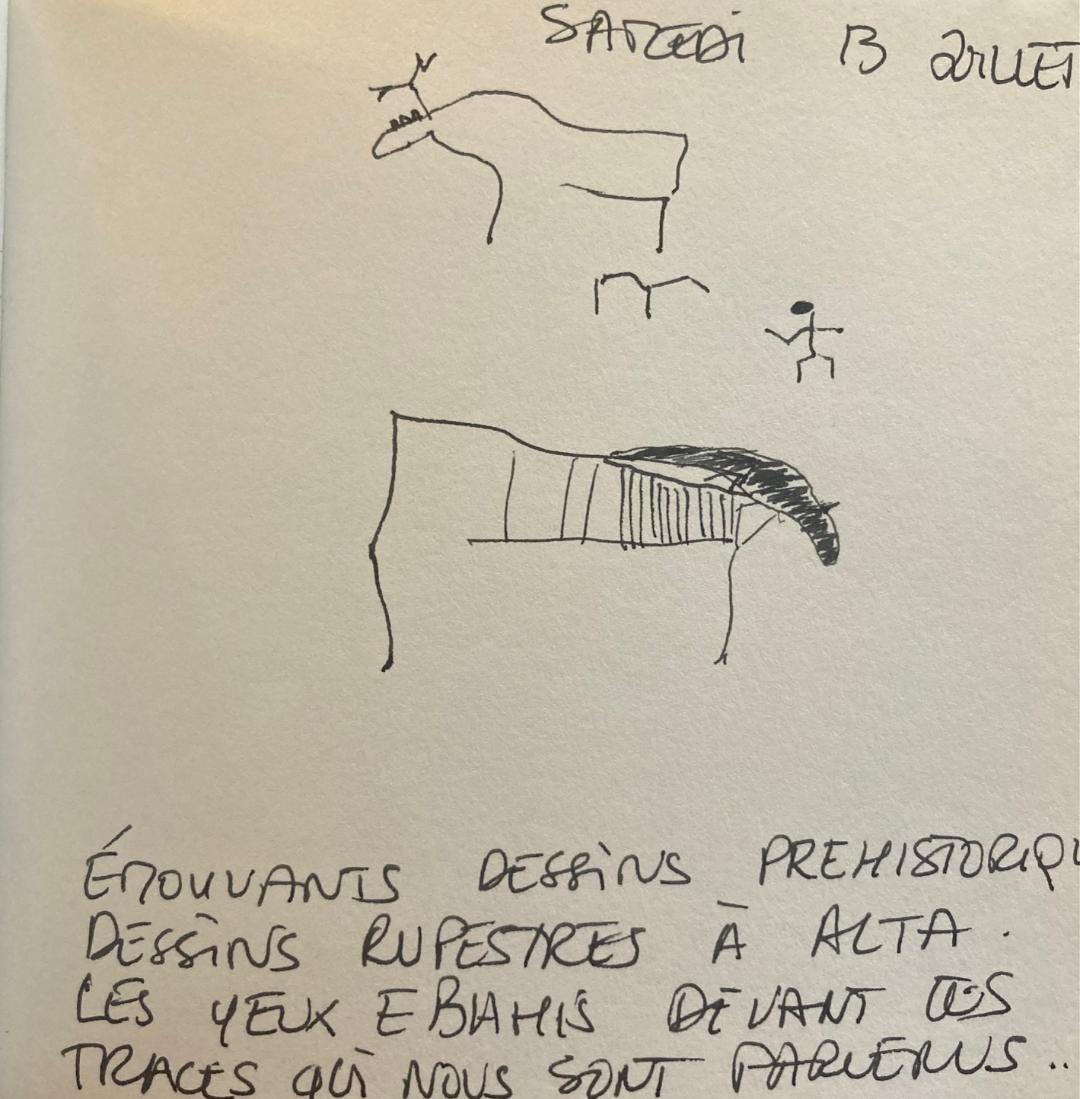 SAMEDI 13 JUILLET
ÉMOUVANTS DESSINS PREHISTORIQU
DESSINS RUPESTRES À ALTA.
LES YEUX EBAHIS DEVANT CES
TRACES QUI NOUS SONT PARVENUS..